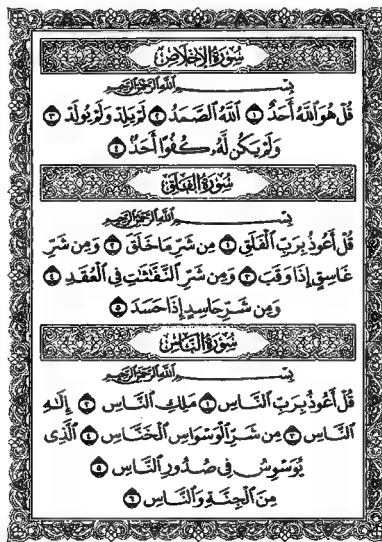 سُورَةُ الإِخْلَاصِ
بِسْمِ اللَّهِ الرَّحْمَٰنِ الرَّحِيمِ
قُلْ هُوَ اللَّهُ أَحَدٌ ١ اللَّهُ الصَّمَدُ ٢ لَمْ يَلِدْ وَلَمْ يُولَدْ ٣
وَلَمْ يَكُن لَّهُۥ كُفُوًا أَحَدٌ ٤
سُورَةُ الْفَلَقِ
بِسْمِ اللَّهِ الرَّحْمَٰنِ الرَّحِيمِ
قُلْ أَعُوذُ بِرَبِّ الْفَلَقِ ١ مِن شَرِّ مَا خَلَقَ ٢ وَمِن شَرِّ
غَاسِقٍ إِذَا وَقَبَ ٣ وَمِن شَرِّ النَّفَّٰثَٰتِ فِي الْعُقَدِ ٤
وَمِن شَرِّ حَاسِدٍ إِذَا حَسَدَ ٥
سُورَةُ النَّاسِ
بِسْمِ اللَّهِ الرَّحْمَٰنِ الرَّحِيمِ
قُلْ أَعُوذُ بِرَبِّ النَّاسِ ١ مَلِكِ النَّاسِ ٢ إِلَٰهِ
النَّاسِ ٣ مِن شَرِّ الْوَسْوَاسِ الْخَنَّاسِ ٤ الَّذِي
يُوَسْوِسُ فِي صُدُورِ النَّاسِ ٥
مِنَ الْجِنَّةِ وَالنَّاسِ ٦